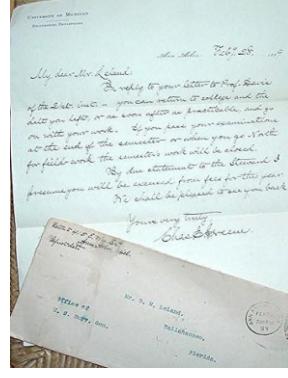 UNIVERSITY OF MICHIGAN
ENGINEERING DEPARTMENT
Ann Arbor, Feb'y. 28,
My dear Mr. Leland.
In reply to your letter to Prof. Davis
of the 21st. inst. — you can return to college and the
dept you left, as as soon after as practicable, and go
on with your work. If you pass your examinations
at the end of the semester or when you go North
for field work the semester's work will be closed.
By due statement to the Steward I
presume you will be excused from fees for the year.
We shall be pleased to see you back
Yours very truly,
Chas E Greene
Office of
U. S.
Mr. S. M. Leland,
Tallahassee,
Florida.